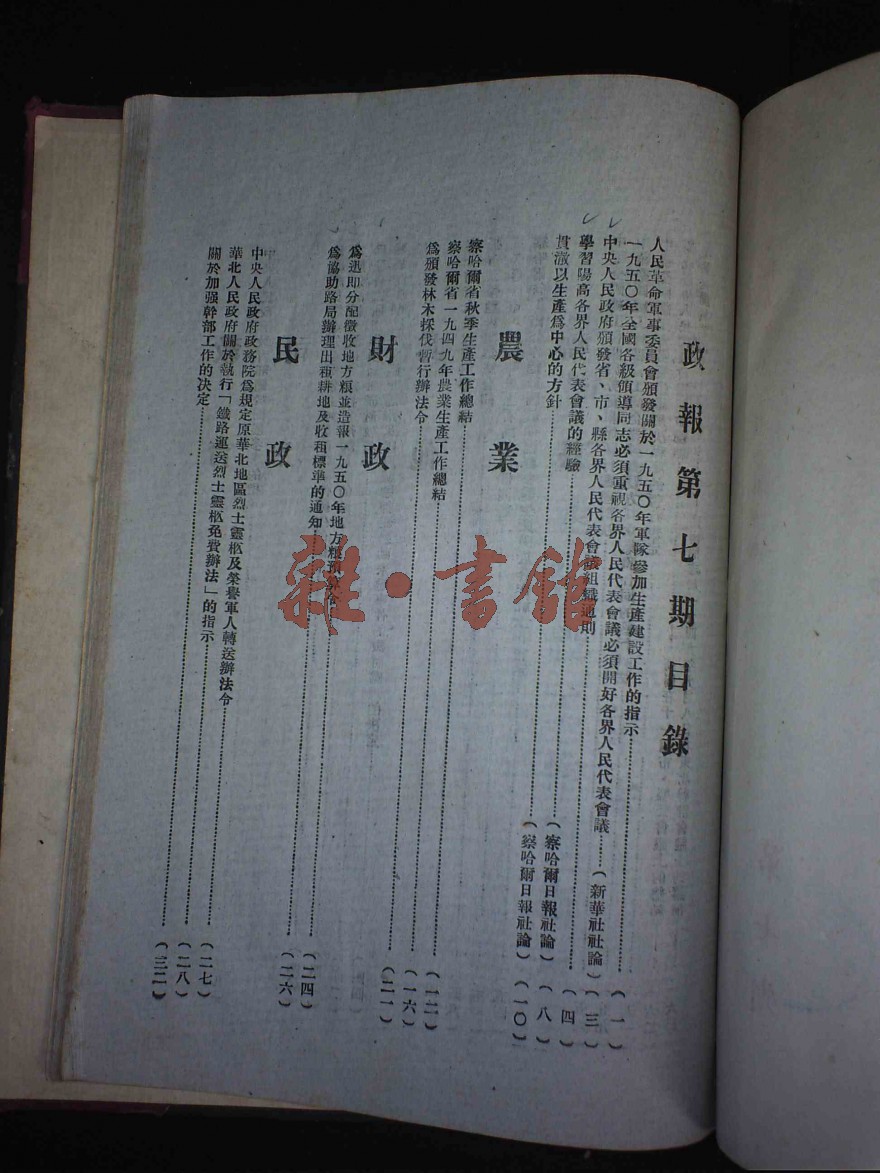 政報第七期目錄
人民革命軍事委員會頒發關於一九五〇年軍隊參加生產建設工作的指示……(一)
一九五〇年全國各級領導同志必須重視各界人民代表會議必須開好各界人民代表會議……(新華社社論)(三)
中央人民政府頒發省、市、縣各界人民代表會議組織通則……(四)
學習陽高各界人民代表會議的經驗……(察哈爾日報社論)(八)
貫澈以生產爲中心的方針……(察哈爾日報社論)(一〇)
農業
察哈爾省秋季生產工作總結……(一二)
察哈爾省一九四九年農業生產工作總結……(一六)
爲頒發林木採伐暫行辦法令……(二一)
財政
爲迅即分配徵收地方糧並造報一九五〇年地方糧預算令……(二四)
爲協助路局辦理出租耕地及收租標準的通知……(二六)
民政
中央人民政府政務院爲規定原華北地區烈士靈柩及榮譽軍人轉送辦法令……(二七)
華北人民政府關於執行「鐵路運送烈士靈柩免費辦法」的指示……(二八)
關於加强幹部工作的決定……(三二)
雜·書館